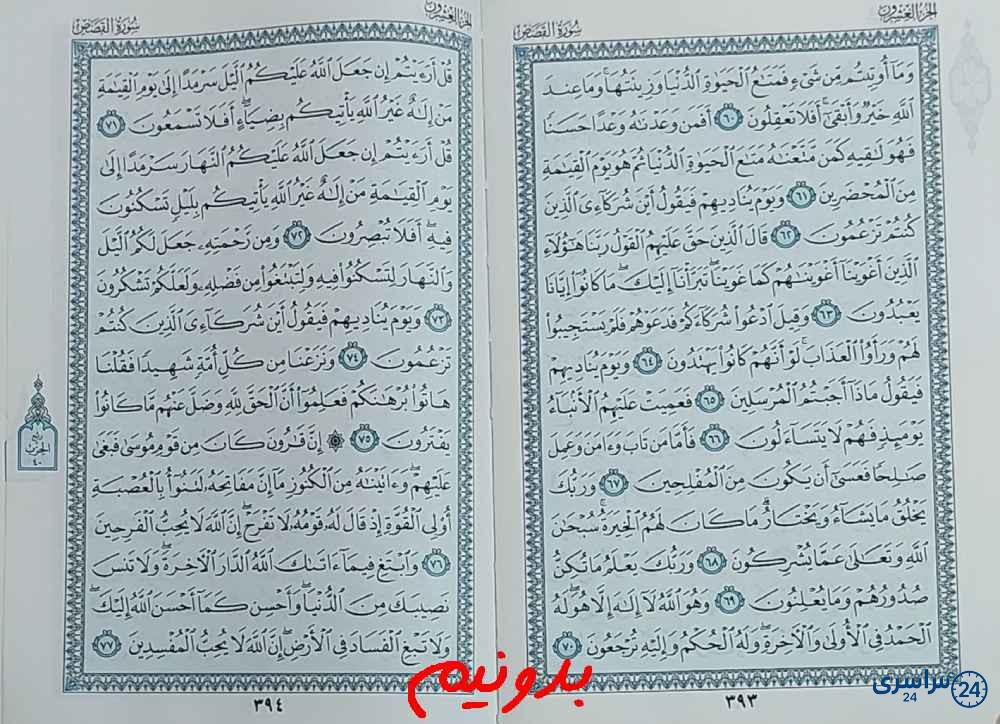 الجزء العشرون
سورة القصص
وَمَآ أُوتِيتُم مِّن شَىْءٍ فَمَتَٰعُ ٱلْحَيَوٰةِ ٱلدُّنْيَا وَزِينَتُهَا وَمَا عِندَ
ٱللَّهِ خَيْرٌ وَأَبْقَىٰٓ أَفَلَا تَعْقِلُونَ ٦٠ أَفَمَن وَعَدْنَٰهُ وَعْدًا حَسَنًا
فَهُوَ لَٰقِيهِ كَمَن مَّتَّعْنَٰهُ مَتَٰعَ ٱلْحَيَوٰةِ ٱلدُّنْيَا ثُمَّ هُوَ يَوْمَ ٱلْقِيَٰمَةِ
مِنَ ٱلْمُحْضَرِينَ ٦١ وَيَوْمَ يُنَادِيهِمْ فَيَقُولُ أَيْنَ شُرَكَآءِىَ ٱلَّذِينَ
كُنتُمْ تَزْعُمُونَ ٦٢ قَالَ ٱلَّذِينَ حَقَّ عَلَيْهِمُ ٱلْقَوْلُ رَبَّنَا هَٰٓؤُلَآءِ
ٱلَّذِينَ أَغْوَيْنَآ أَغْوَيْنَٰهُمْ كَمَا غَوَيْنَا تَبَرَّأْنَآ إِلَيْكَ مَا كَانُوٓا۟ إِيَّانَا
يَعْبُدُونَ ٦٣ وَقِيلَ ٱدْعُوا۟ شُرَكَآءَكُمْ فَدَعَوْهُمْ فَلَمْ يَسْتَجِيبُوا۟
لَهُمْ وَرَأَوُا۟ ٱلْعَذَابَ لَوْ أَنَّهُمْ كَانُوا۟ يَهْتَدُونَ ٦٤ وَيَوْمَ يُنَادِيهِمْ
فَيَقُولُ مَاذَآ أَجَبْتُمُ ٱلْمُرْسَلِينَ ٦٥ فَعَمِيَتْ عَلَيْهِمُ ٱلْأَنۢبَآءُ
يَوْمَئِذٍ فَهُمْ لَا يَتَسَآءَلُونَ ٦٦ فَأَمَّا مَن تَابَ وَءَامَنَ وَعَمِلَ
صَٰلِحًا فَعَسَىٰٓ أَن يَكُونَ مِنَ ٱلْمُفْلِحِينَ ٦٧ وَرَبُّكَ
يَخْلُقُ مَا يَشَآءُ وَيَخْتَارُ مَا كَانَ لَهُمُ ٱلْخِيَرَةُ سُبْحَٰنَ
ٱللَّهِ وَتَعَٰلَىٰ عَمَّا يُشْرِكُونَ ٦٨ وَرَبُّكَ يَعْلَمُ مَا تُكِنُّ
صُدُورُهُمْ وَمَا يُعْلِنُونَ ٦٩ وَهُوَ ٱللَّهُ لَآ إِلَٰهَ إِلَّا هُوَ لَهُ
ٱلْحَمْدُ فِى ٱلْأُولَىٰ وَٱلْءَاخِرَةِ وَلَهُ ٱلْحُكْمُ وَإِلَيْهِ تُرْجَعُونَ ٧٠
٣٩٣
الجزء العشرون
سورة القصص
قُلْ أَرَءَيْتُمْ إِن جَعَلَ ٱللَّهُ عَلَيْكُمُ ٱلَّيْلَ سَرْمَدًا إِلَىٰ يَوْمِ ٱلْقِيَٰمَةِ
مَنْ إِلَٰهٌ غَيْرُ ٱللَّهِ يَأْتِيكُم بِضِيَآءٍ أَفَلَا تَسْمَعُونَ ٧١
قُلْ أَرَءَيْتُمْ إِن جَعَلَ ٱللَّهُ عَلَيْكُمُ ٱلنَّهَارَ سَرْمَدًا إِلَىٰ
يَوْمِ ٱلْقِيَٰمَةِ مَنْ إِلَٰهٌ غَيْرُ ٱللَّهِ يَأْتِيكُم بِلَيْلٍ تَسْكُنُونَ
فِيهِ أَفَلَا تُبْصِرُونَ ٧٢ وَمِن رَّحْمَتِهِۦ جَعَلَ لَكُمُ ٱلَّيْلَ
وَٱلنَّهَارَ لِتَسْكُنُوا۟ فِيهِ وَلِتَبْتَغُوا۟ مِن فَضْلِهِۦ وَلَعَلَّكُمْ تَشْكُرُونَ
٧٣ وَيَوْمَ يُنَادِيهِمْ فَيَقُولُ أَيْنَ شُرَكَآءِىَ ٱلَّذِينَ كُنتُمْ
تَزْعُمُونَ ٧٤ وَنَزَعْنَا مِن كُلِّ أُمَّةٍ شَهِيدًا فَقُلْنَا
هَاتُوا۟ بُرْهَٰنَكُمْ فَعَلِمُوٓا۟ أَنَّ ٱلْحَقَّ لِلَّهِ وَضَلَّ عَنْهُم مَّا كَانُوا۟
يَفْتَرُونَ ٧٥ ۞ إِنَّ قَٰرُونَ كَانَ مِن قَوْمِ مُوسَىٰ فَبَغَىٰ
عَلَيْهِمْ وَءَاتَيْنَٰهُ مِنَ ٱلْكُنُوزِ مَآ إِنَّ مَفَاتِحَهُۥ لَتَنُوٓأُ بِٱلْعُصْبَةِ
أُو۟لِى ٱلْقُوَّةِ إِذْ قَالَ لَهُۥ قَوْمُهُۥ لَا تَفْرَحْ إِنَّ ٱللَّهَ لَا يُحِبُّ ٱلْفَرِحِينَ
٧٦ وَٱبْتَغِ فِيمَآ ءَاتَىٰكَ ٱللَّهُ ٱلدَّارَ ٱلْءَاخِرَةَ وَلَا تَنسَ
نَصِيبَكَ مِنَ ٱلدُّنْيَا وَأَحْسِن كَمَآ أَحْسَنَ ٱللَّهُ إِلَيْكَ
وَلَا تَبْغِ ٱلْفَسَادَ فِى ٱلْأَرْضِ إِنَّ ٱللَّهَ لَا يُحِبُّ ٱلْمُفْسِدِينَ ٧٧
٣٩٤
ربع
الحزب
٤٠
بدونیم
سراسری
24
24